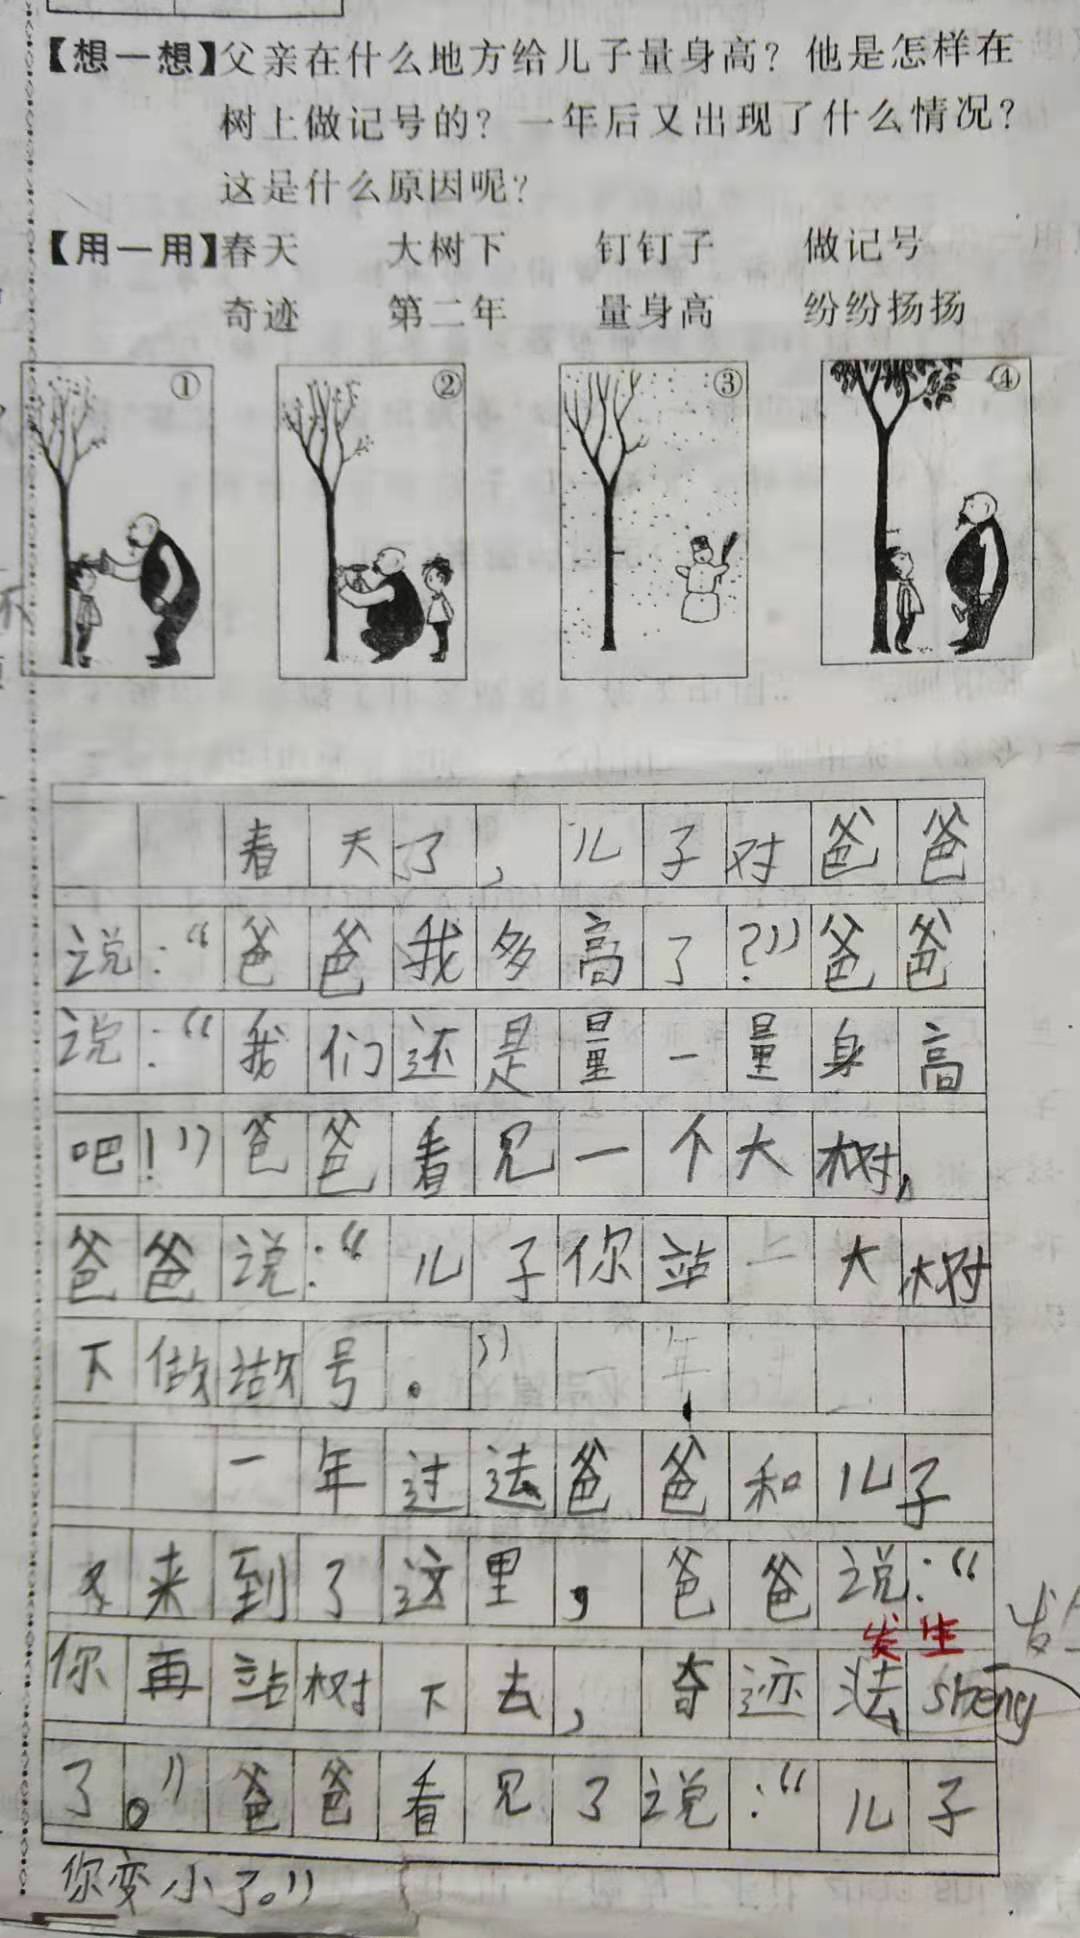 【想一想】父亲在什么地方给儿子量身高？他是怎样在
树上做记号的？一年后又出现了什么情况？
这是什么原因呢？
【用一用】春天 大树下 钉钉子 做记号
奇迹 第二年 量身高 纷纷扬扬
① ② ③ ④
春天了，儿子对爸爸
说：“爸爸我多高了？”爸爸
说：“我们还是量一量身高
吧！”爸爸看见一个大树，
爸爸说：“儿子你站上大树
下做号。”
一年过去爸爸和儿子
来到了这里，爸爸说：“
发生
你再站树下去，奇迹法shēng
了。”爸爸看见了说：“儿子
你变小了。”